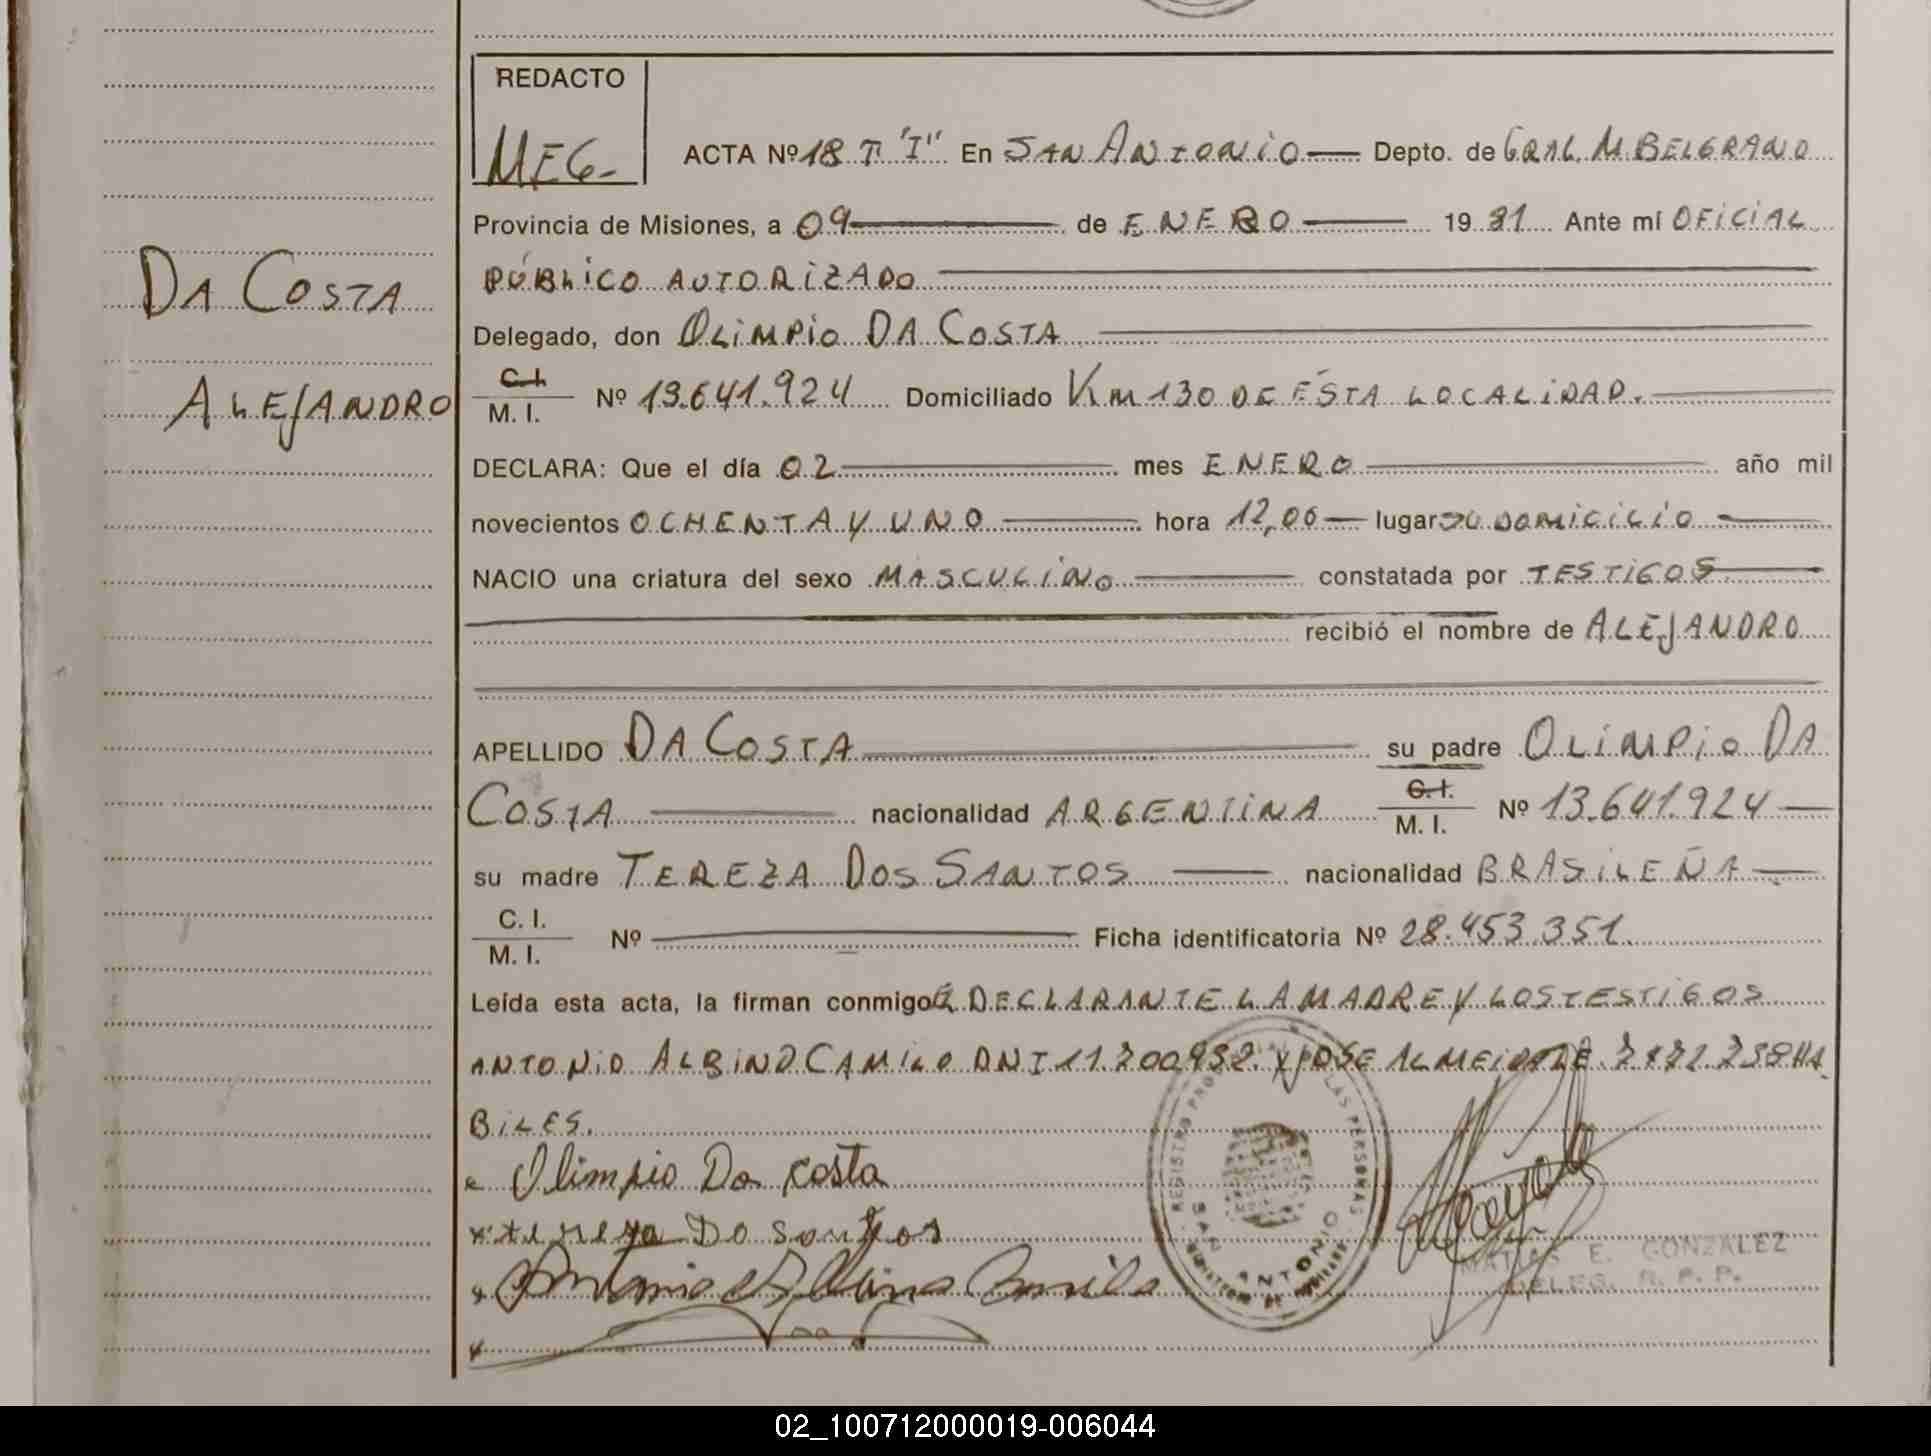 REDACTO
MEG-
ACTA Nº 18 T "I" En SAN ANTONIO Depto. de GRAL. M. BELGRANO
Provincia de Misiones, a 09 de ENERO 1981 Ante mí OFICIAL
PÚBLICO AUTORIZADO
Delegado, don OLIMPIO DA COSTA
C.I. M. I. Nº 13.641.924 Domiciliado Km 130 DE ÉSTA LOCALIDAD.
DECLARA: Que el día 02 mes ENERO año mil
novecientos OCHENTA Y UNO hora 12,00 lugar SU DOMICILIO
NACIO una criatura del sexo MASCULINO constatada por TESTIGOS
recibió el nombre de ALEJANDRO
APELLIDO DA COSTA su padre OLIMPIO DA
COSTA nacionalidad ARGENTINA C.I. M. I. Nº 13.641.924
su madre TEREZA DOS SANTOS nacionalidad BRASILEÑA
C. I. M. I. Nº Ficha identificatoria Nº 28.453.351
Leída esta acta, la firman conmigo EL DECLARANTE LA MADRE Y LOS TESTIGOS
ANTONIO ALBINO CAMILO DNI 11.200.952. Y JOSE ALMEIDA HA
BILES.
Olimpio Da Costa
tereza Do santos
Antonio Albino Camilo
REGISTRO LAS PERSONAS
SAN ANTONIO
MATIAS E. GONZALEZ
DELEG. R. P. P.
DA COSTA
ALEJANDRO
02_100712000019-006044